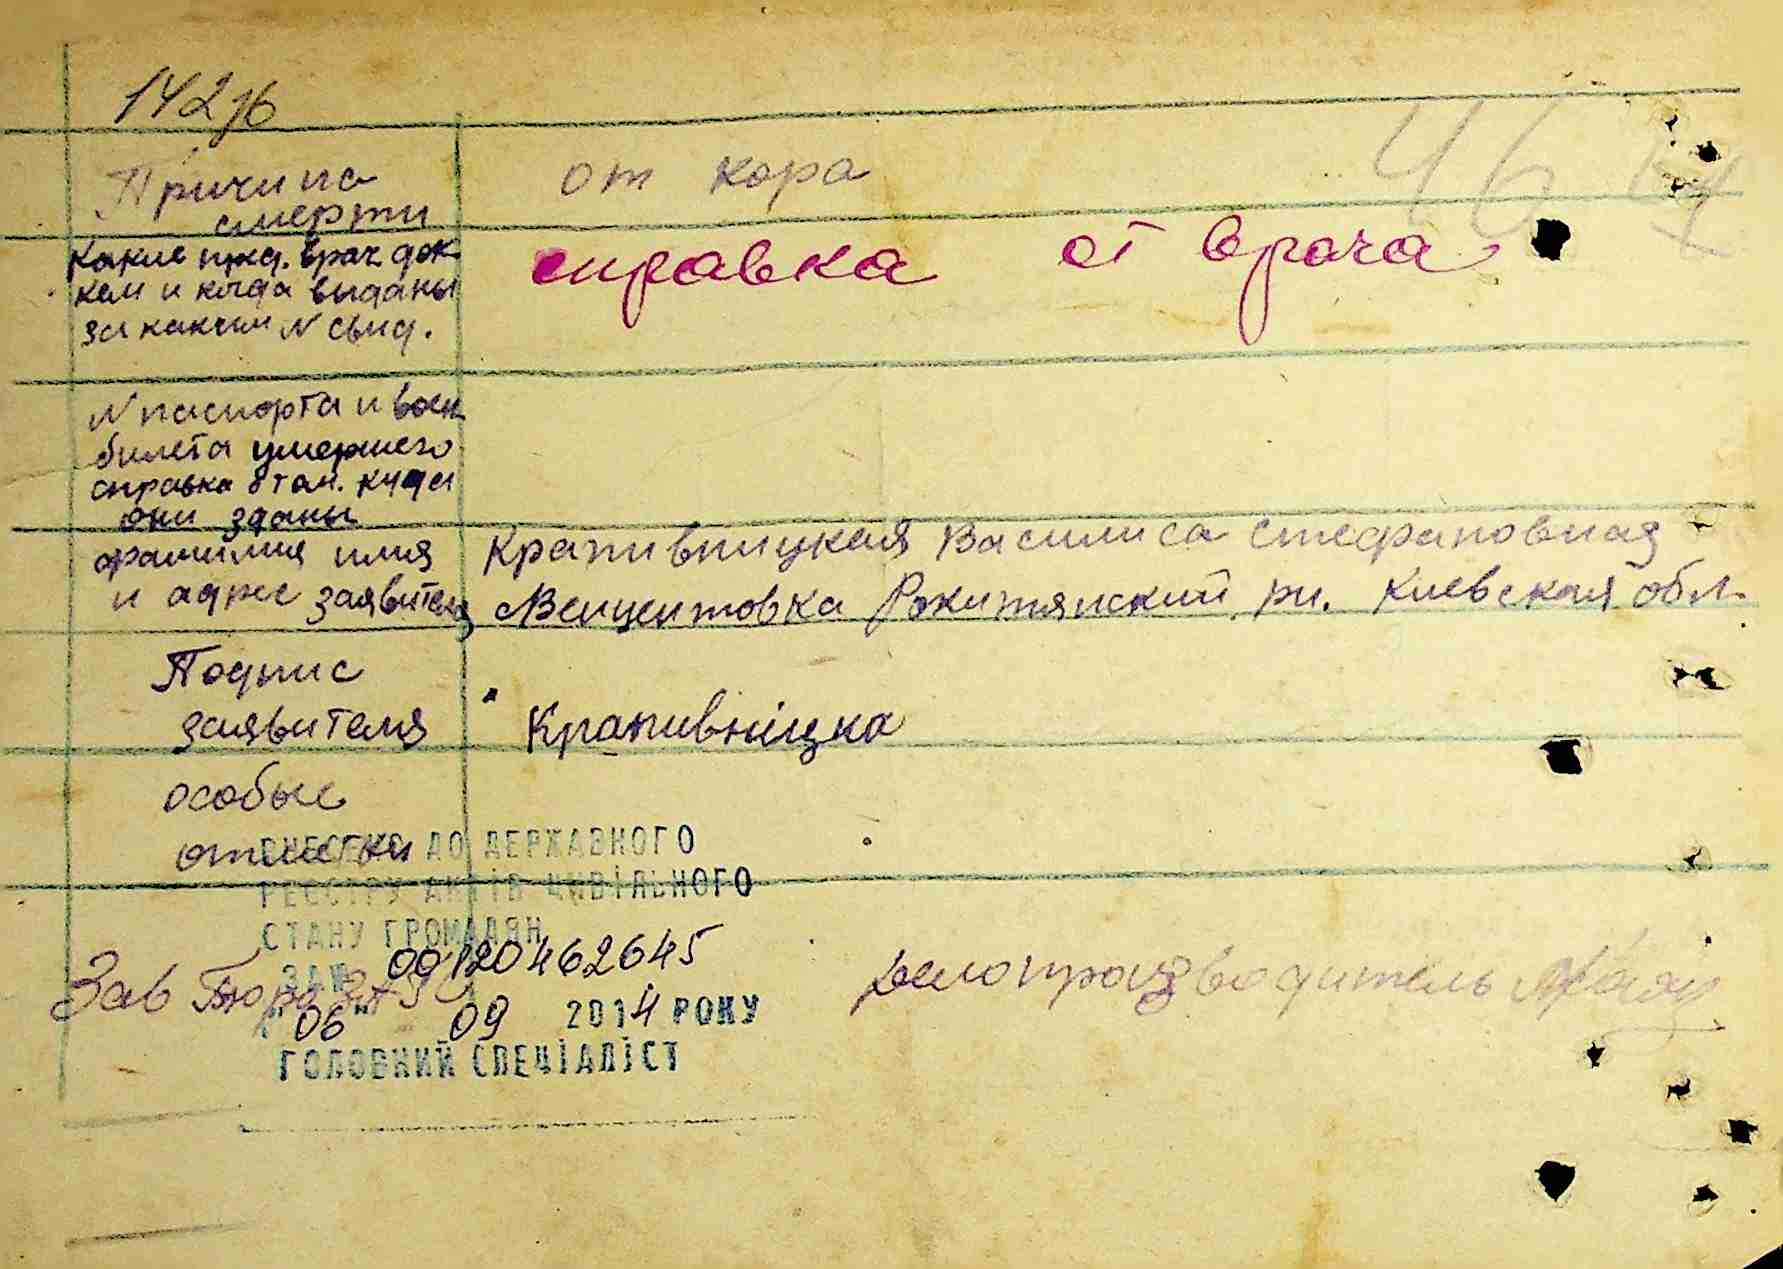 142
Причина
смерти
от кора
какие пред. врач. док
кем и когда выданы
за каким N свид.
справка от врача
N паспорта и воен
билета умершего
справка о том. куда
они зданы
фамилия имя
и адрес заявителя
Крапивницкая Василиса Стефановная
Венцентовка Рокитянский рн. Киевская обл.
Подпис
заявителя
Крапивніцка
особые
отметки
ВНЕСЕНО ДО ДЕРЖАВНОГО
РЕЄСТРУ АКТІВ ЦИВІЛЬНОГО
СТАНУ ГРОМАДЯН
ЗА № 00120462645
Зав Бюро ЗАГС
делопроизводитель
"06" 09 2014 РОКУ
ГОЛОВНИЙ СПЕЦІАЛІСТ